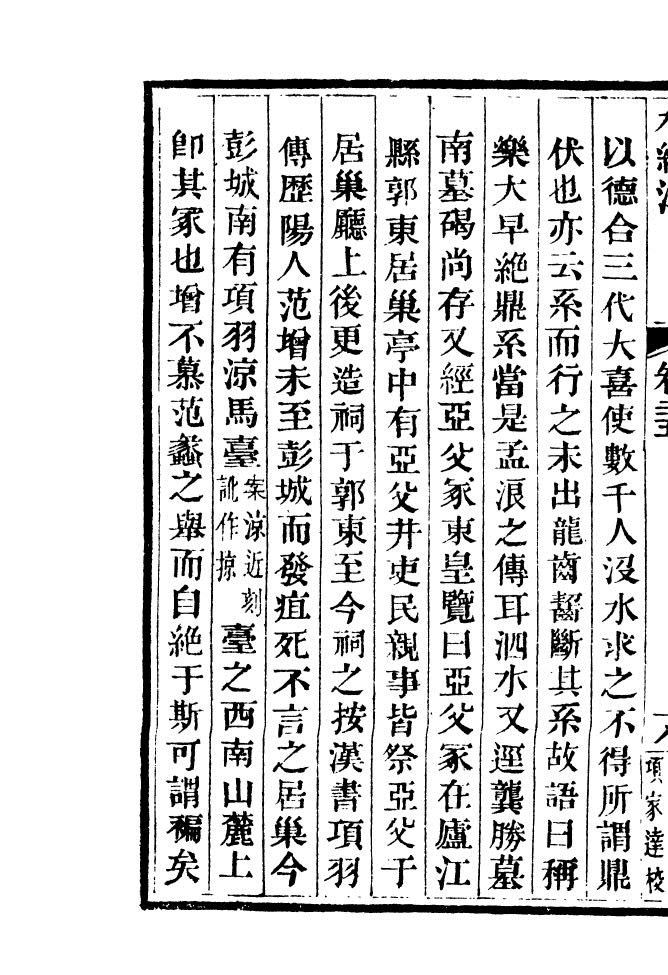 項家達校
以德合三代大喜使數千人沒水求之不得所謂鼎
伏也亦云系而行之未出龍齒齧斷其系故語曰稱
樂大早絶鼎系當是孟浪之傳耳泗水又逕龔勝墓
南墓碣尚存又經亞父冢東皇覽曰亞父冢在廬江
縣郭東居巢亭中有亞父井吏民親事皆祭亞父于
居巢廳上後更造祠于郭東至今祠之按漢書項羽
傳歷陽人范增未至彭城而發疽死不言之居巢今
彭城南有項羽涼馬臺案涼近刻訛作掠臺之西南山麓上
即其冢也增不慕范蠡之舉而自絶于斯可謂褊矣